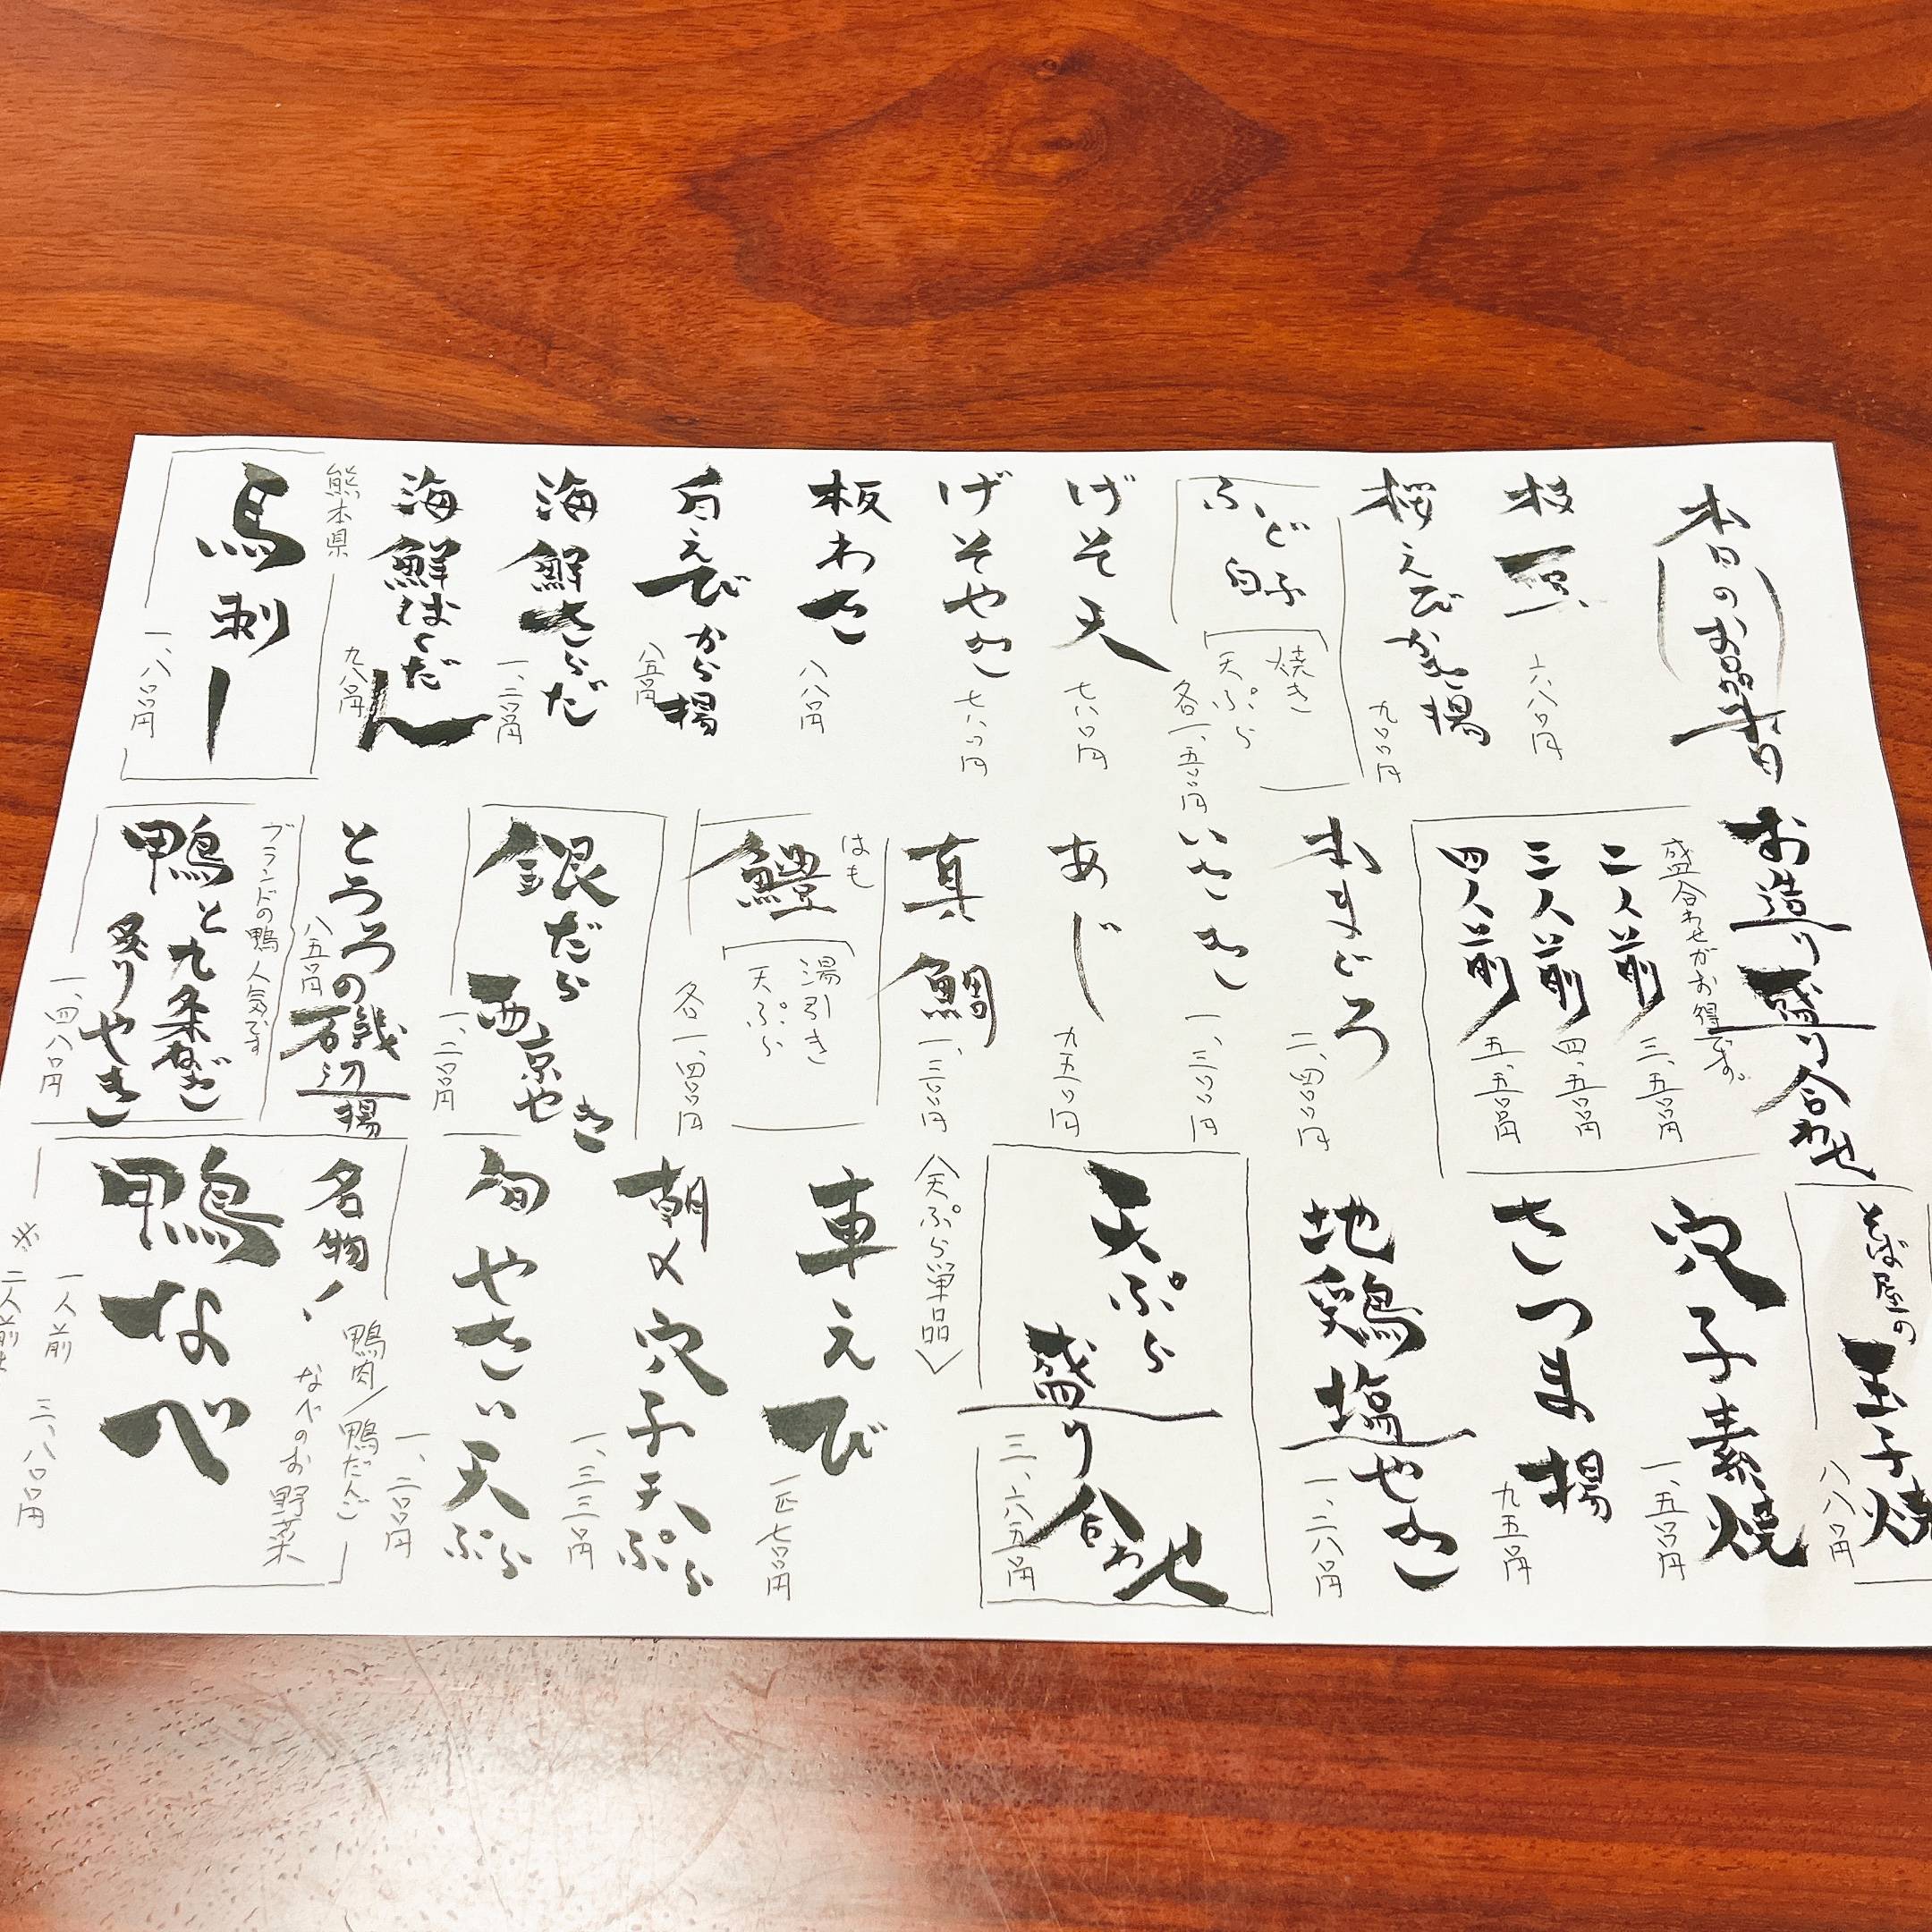 本日のお品書き
枝豆
六八〇円
桜えびかき揚
九〇〇円
ふぐ白子
焼き
天ぷら
各一、五〇〇円
げそ天
七八〇円
げそやき
七八〇円
板わさ
八八〇円
白えびから揚
八五〇円
海鮮さらだ
一、二〇〇円
海鮮ばくだん
九八〇円
熊本県
馬刺し
一、八〇〇円
お造り盛り合わせ
盛合わせがお得です。
二人前
三、五〇〇円
三人前
四、五〇〇円
四人前
五、五〇〇円
本まぐろ
二、四〇〇円
いさき
一、三〇〇円
あじ
九五〇円
真鯛
一、三〇〇円
はも
鱧
湯引き
天ぷら
各一、四〇〇円
銀だら西京やき
一、二〇〇円
とろろの磯辺揚
八五〇円
ブランドの鴨人気です
鴨と九条ねぎ
炙りやき
一、四八〇円
そば屋の
玉子焼
八八〇円
穴子素焼
一、五〇〇円
さつま揚
九五〇円
地鶏塩やき
一、二八〇円
天ぷら
盛り合わせ
三、六五〇円
〈天ぷら単品〉
車えび
一匹七〇〇円
朝〆穴子天ぷら
一、三三〇円
旬やさい天ぷら
一、二〇〇円
名物!
鴨なべ
鴨肉/鴨だんご
なべのお野菜
一人前 三、八〇〇円
※二人前